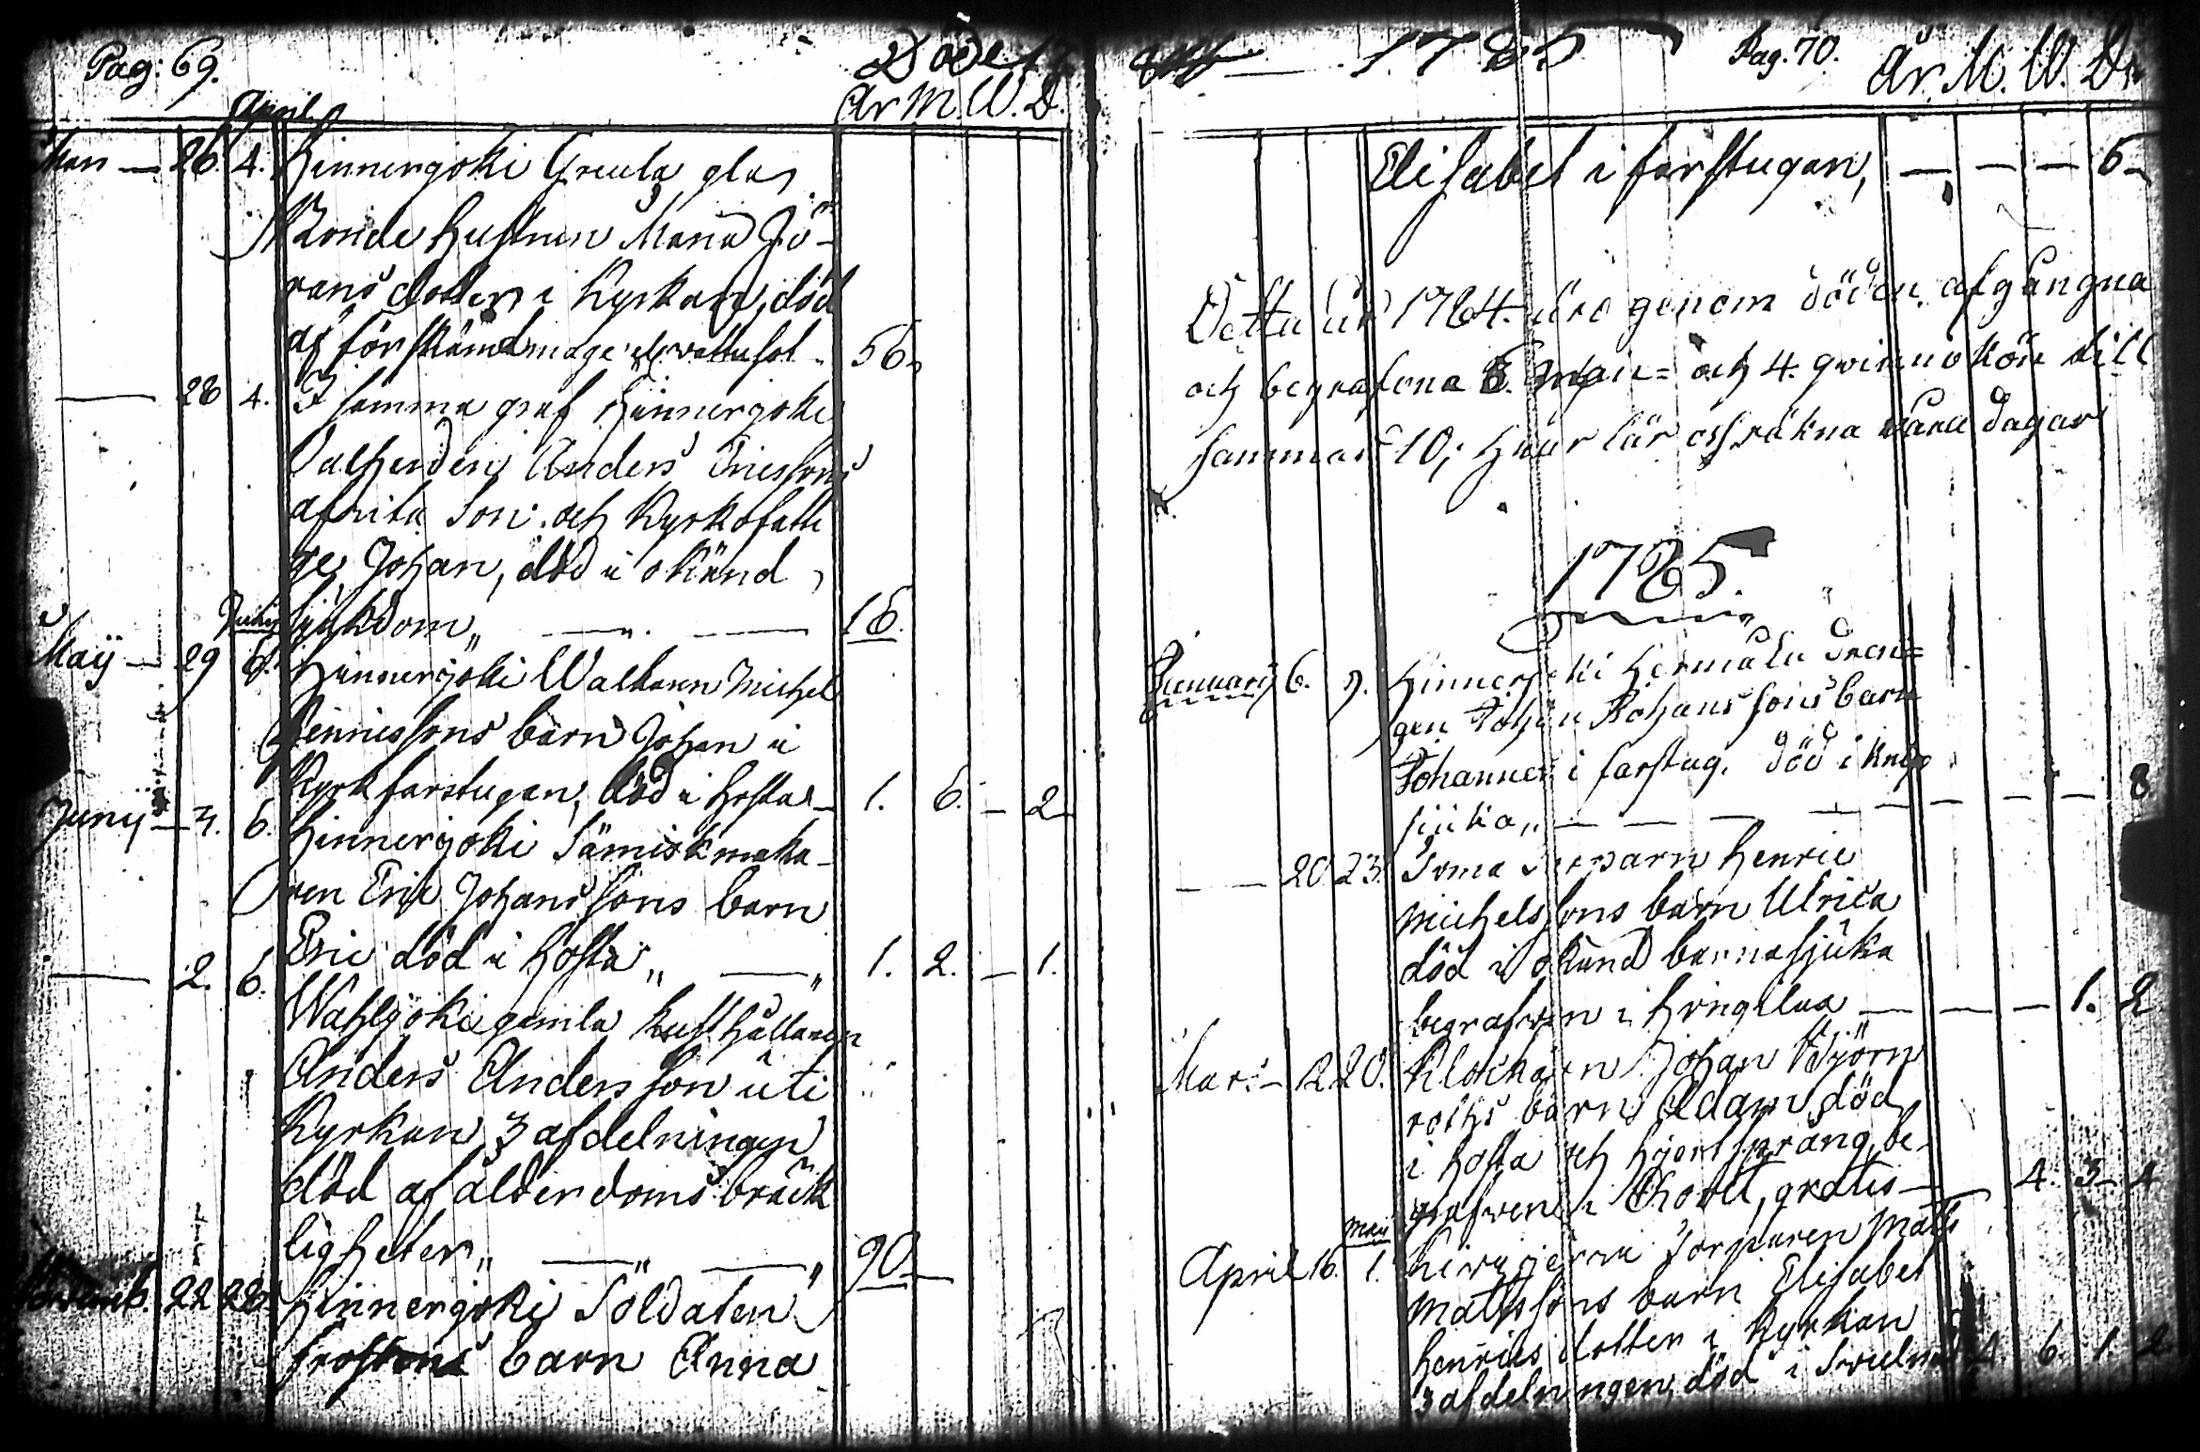 Pag: 69.
Döde
År M. W. D.
April
26. 4. Hinnerjoki Greula
Bonde Hustrun Maria Jö-
rans dotter i Kyrkan, död
af förskämd mage 56
28 4. I samma graf Hinnerjoki
Anders Ericssons
son och Kyrkofatti
ge Johan, död i okänd
sjukdom „ — „ — 16.
Maÿ — 29 Hinnerjoki Michel
barn Johan i
Kyrkfarstugan, död i hosta — 1. 6. — 2
Juny — 6. Hinnerjoki Sämiskmaka-
ren Eric Johanssons barn
Eric död i hosta „ — „ 1. 2. — 1.
— 2. 6. Wahljoki gamla Rusthållaren
Anders Andersson uti
Kyrkan 3 afdelningen
död af ålderdoms bräck
ligheter „ — „ — „ 90 —
22 28. Hinnerjoki Soldaten
barn Anna
Pag. 70.
År. M. W. D.
Elisabet i farstugan, — — — 6
Detta år 1764. äro genom döden afgångna
och begrafvna 6. man= och 4. qvinnokön till
sammans 10; Herr lär oss räkna våra dagar
1765
Januarij 6. 9. Hinnerjoki Hermala Dren=
gen Johan Johanssons barn
Johannes i farstug. död i
sjuka „ — — — — — — — 8
— 20 23. Henric
Michelssons barn Ulrica
död i okänd barnasjuka
begrafven i — — — 1. 2
Mars — 12 20. Klockaren Johan Björn
roths barn Adam, död
i hosta och hjertsprång, be-
grafven i Choret, gratis — — 4. 3. 4
Maij
April 16. 1. Torparen Matts
Mattssons barn Elisabet
Henrics dotter i Kyrkan
3 afdelningen, död i 4. 6. 1. 2.